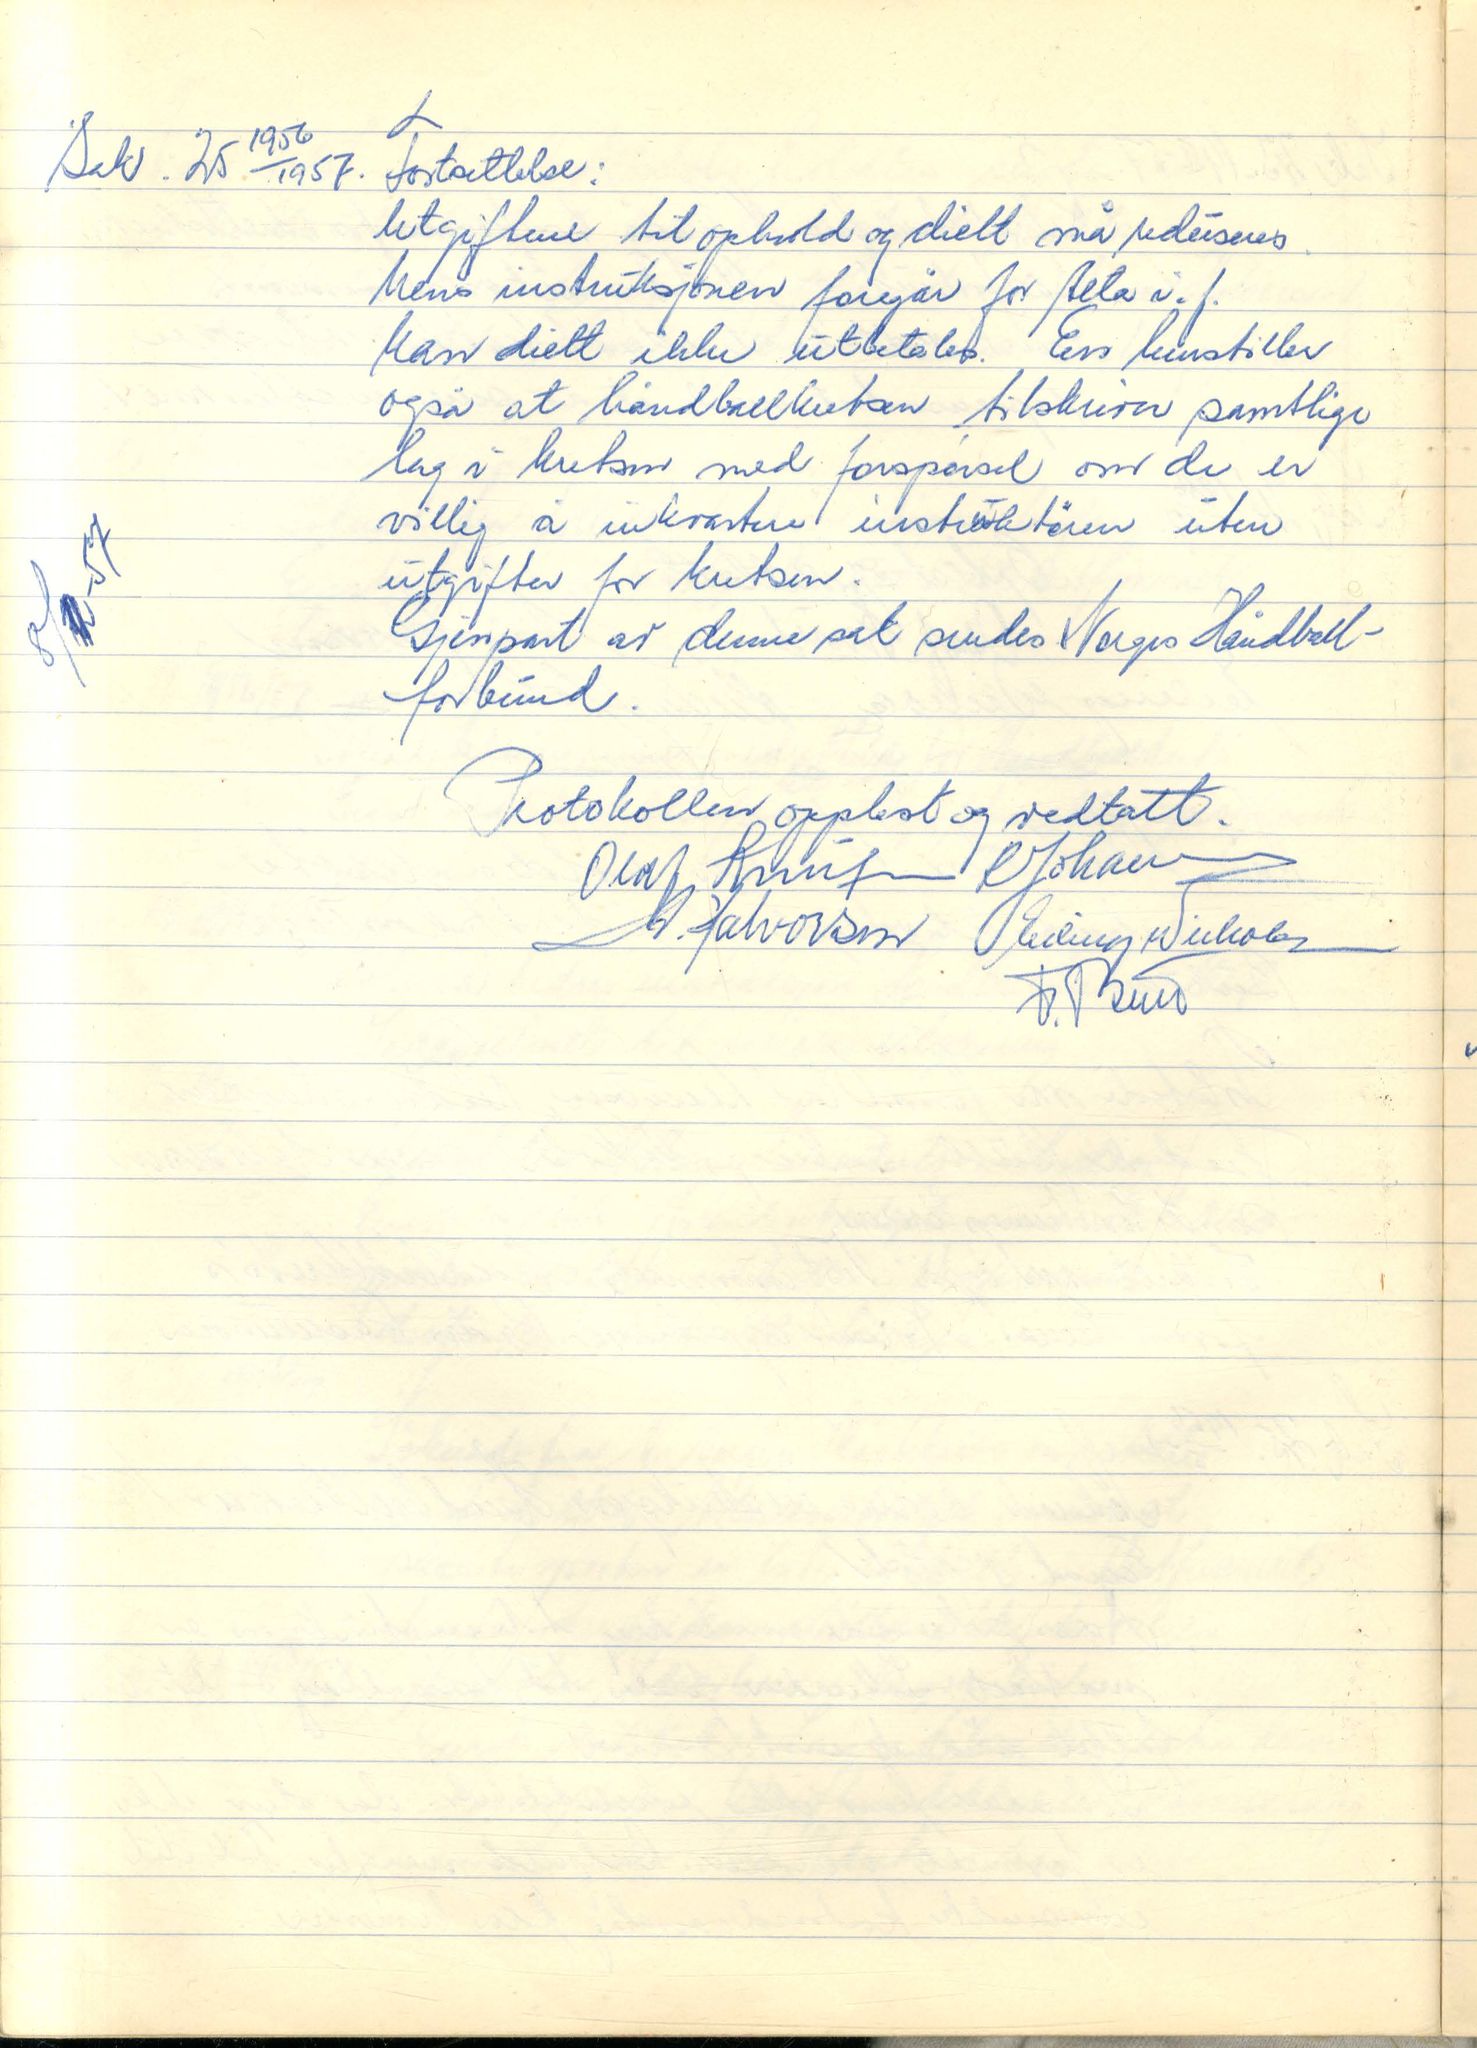 Sak. 25 1956/1957. Fortsettelse:
Utgiftene til ophold og diett må redüseres.
Mens instrüksjonen foregår for Alta i. f.
kan diett ikke ütbetales. En henstiller
også at håndballkretsen tilskriver samtlige
lag i kretsen med forspørsel om de er
villig å inkvartere instrüktøren üten
ütgifter for kretsen.
8/2-57
Gjenpart av denne sak sendes Norges Håndball-
forbünd.
Protokollen opplest og vedtatt.
Olaf Johan
Halvorsen Erling Nickolo